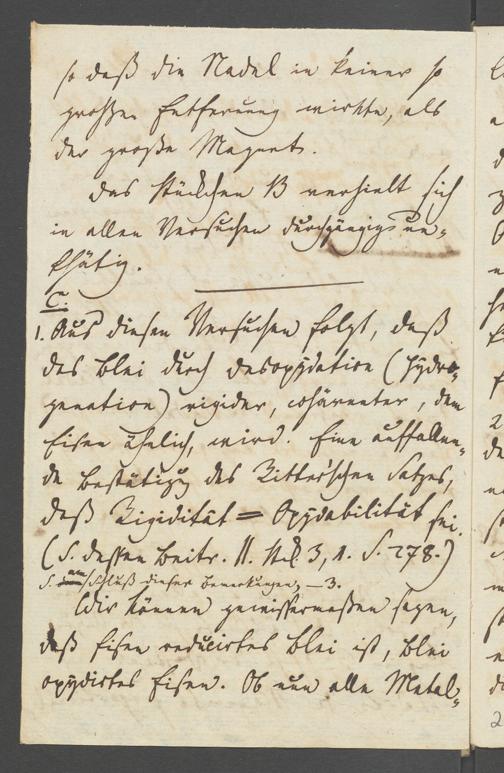 so daß die Nadel in keiner so
großen Entfernung wirkte, als
der große Magnet.
Das Stückchen B verhielt sich
in allen Versuchen durchgängig un-
thätig.
C.
1. Aus diesen Versuchen folgt, daß
das Blei durch Desoxydation (Hydro-
genation) rigider, cohärenter, dem
Eisen ähnlich, wird. Eine auffallen-
de Bestätigg des Ritter'schen Satzes,
daß Rigidität = Oxydabilität sei.
(S. dessen Beitr. II. St. 3, 4. S. 278.)
S. am Schluß dieser Bemerkungen, – 3.
Wir können gewissermaßen sagen,
daß Eisen reducirtes Blei ist, Blei
oxydirtes Eisen. Ob nun alle Metal-
2